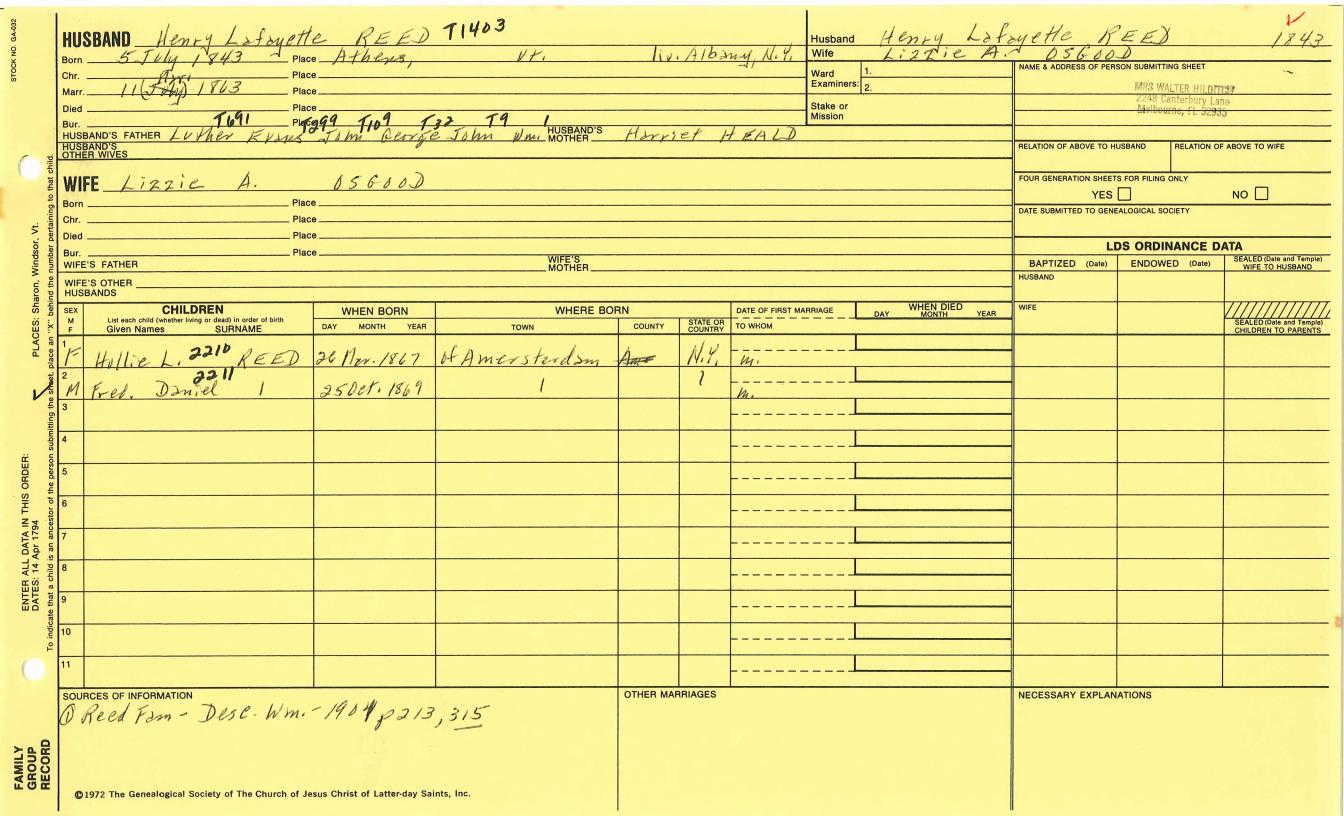 STOCK NO. GA-032
HUSBAND Henry Lafayette REED T1403
Born 5 July 1843 Place Athens, Vt. liv. Albany, N.Y.
Chr. Place
Apr.
Marr. 11 (July) 1863 Place
Died Place
Bur. Place
T691 T299 T109 T32 T9 1
HUSBAND'S FATHER Luther Evans John George John Wm. HUSBAND'S MOTHER Harriet HEALD
HUSBAND'S OTHER WIVES
WIFE Lizzie A. OSGOOD
Born Place
Chr. Place
Died Place
Bur. Place
WIFE'S FATHER WIFE'S MOTHER
WIFE'S OTHER HUSBANDS
Husband Henry Lafayette REED 1843
Wife Lizzie A. OSGOOD
Ward Examiners: 1.
2.
Stake or Mission
NAME & ADDRESS OF PERSON SUBMITTING SHEET
MRS WALTER
2248 Canterbury Lane
Melbourne, FL 32935
RELATION OF ABOVE TO HUSBAND RELATION OF ABOVE TO WIFE
FOUR GENERATION SHEETS FOR FILING ONLY
YES NO
DATE SUBMITTED TO GENEALOGICAL SOCIETY
LDS ORDINANCE DATA
BAPTIZED (Date) ENDOWED (Date) SEALED (Date and Temple) WIFE TO HUSBAND
HUSBAND
WIFE
SEALED (Date and Temple) CHILDREN TO PARENTS
SEX M F
CHILDREN
List each child (whether living or dead) in order of birth
Given Names SURNAME
WHEN BORN
DAY MONTH YEAR
WHERE BORN
TOWN COUNTY STATE OR COUNTRY
DATE OF FIRST MARRIAGE
TO WHOM
WHEN DIED
DAY MONTH YEAR
1 F Hollie L. 2210 REED 26 Mar. 1867 of Amersterdam Ams N.Y. m.
2 M Fred. Daniel 2211 1 25 Oct. 1869 1 1 m.
3
4
5
6
7
8
9
10
11
SOURCES OF INFORMATION
① Reed Fam - Desc. Wm. - 1901 p213, 315
OTHER MARRIAGES
NECESSARY EXPLANATIONS
©1972 The Genealogical Society of The Church of Jesus Christ of Latter-day Saints, Inc.
FAMILY GROUP RECORD
ENTER ALL DATA IN THIS ORDER:
DATES: 14 Apr 1794
PLACES: Sharon, Windsor, Vt.
To indicate that a child is an ancestor of the person submitting the sheet, place an "X" behind the number pertaining to that child.